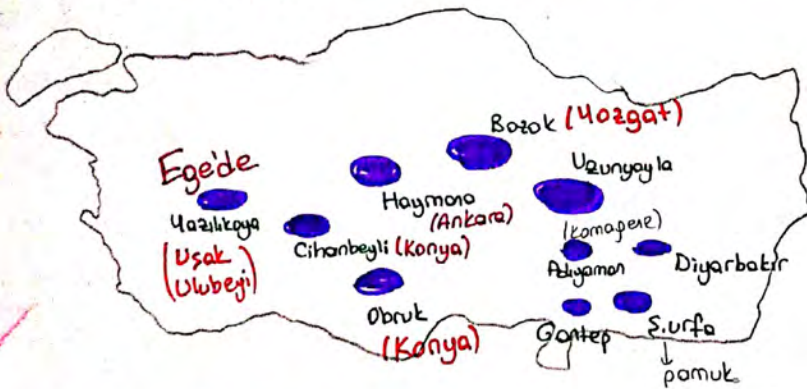 Bozok (Yozgat)
Ege'de
Uzunyayla
Haymana
(Ankara)
Yazılıkaya
(Uşak
Ulubeyi)
Cihanbeyli (Konya)
Adıyaman
Diyarbakır
Obruk
(Konya)
Gantep
Ş.urfa
pamuk